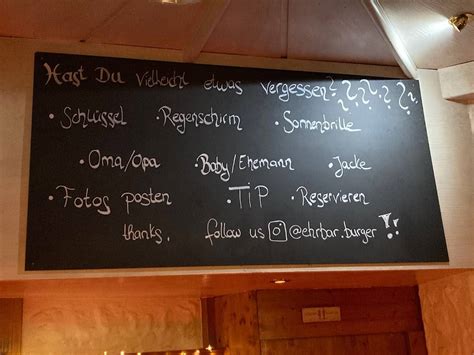 Hast Du vielleicht etwas vergessen????????
• Schlüssel • Regenschirm • Sonnenbrille
• Oma/Opa • Baby/Ehemann • Jacke
• Fotos posten • TIP • Reservieren
thanks, follow us @ehrbar.burger !!